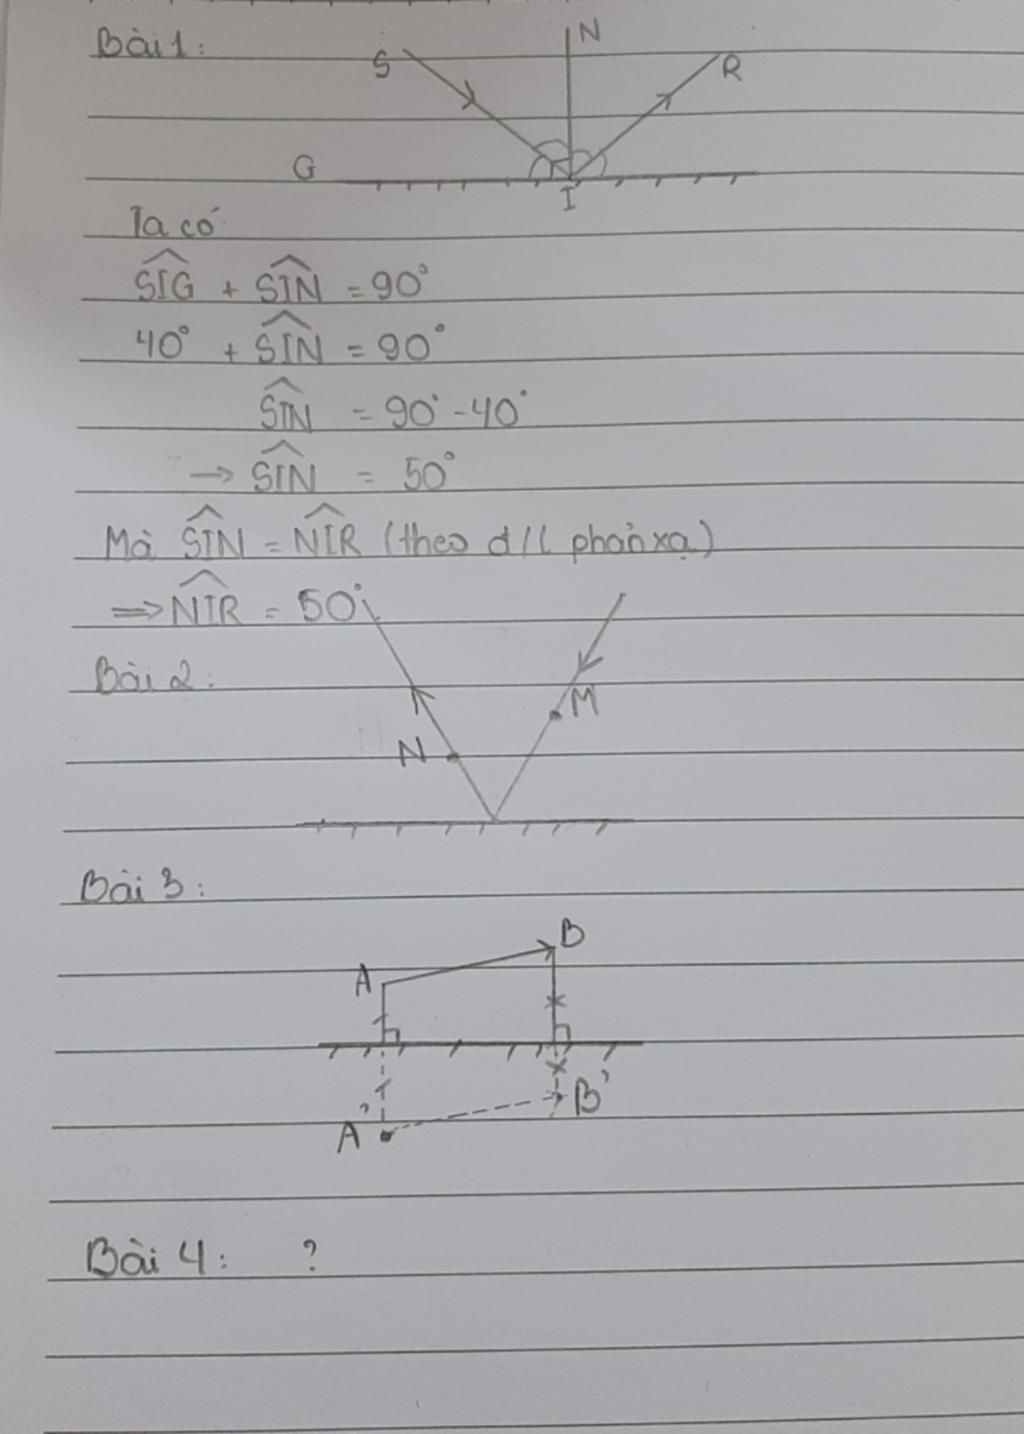 Bài 1:
S
N
R
G
I
Ta có
SIG + SIN = 90°
40° + SIN = 90°
SIN = 90° - 40°
→ SIN = 50°
Mà SIN = NIR (theo đ/l phản xạ)
=> NIR = 50°
Bài 2:
M
N
Bài 3:
B
A
B'
A'
Bài 4: ?